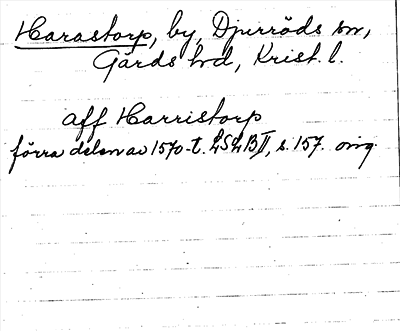 Harastorp, by, Djurröds sn,
Gärds hd, Krist. l.
aff Harristorp
förra delen av 1570-t. LSLB II, s. 157. orig.